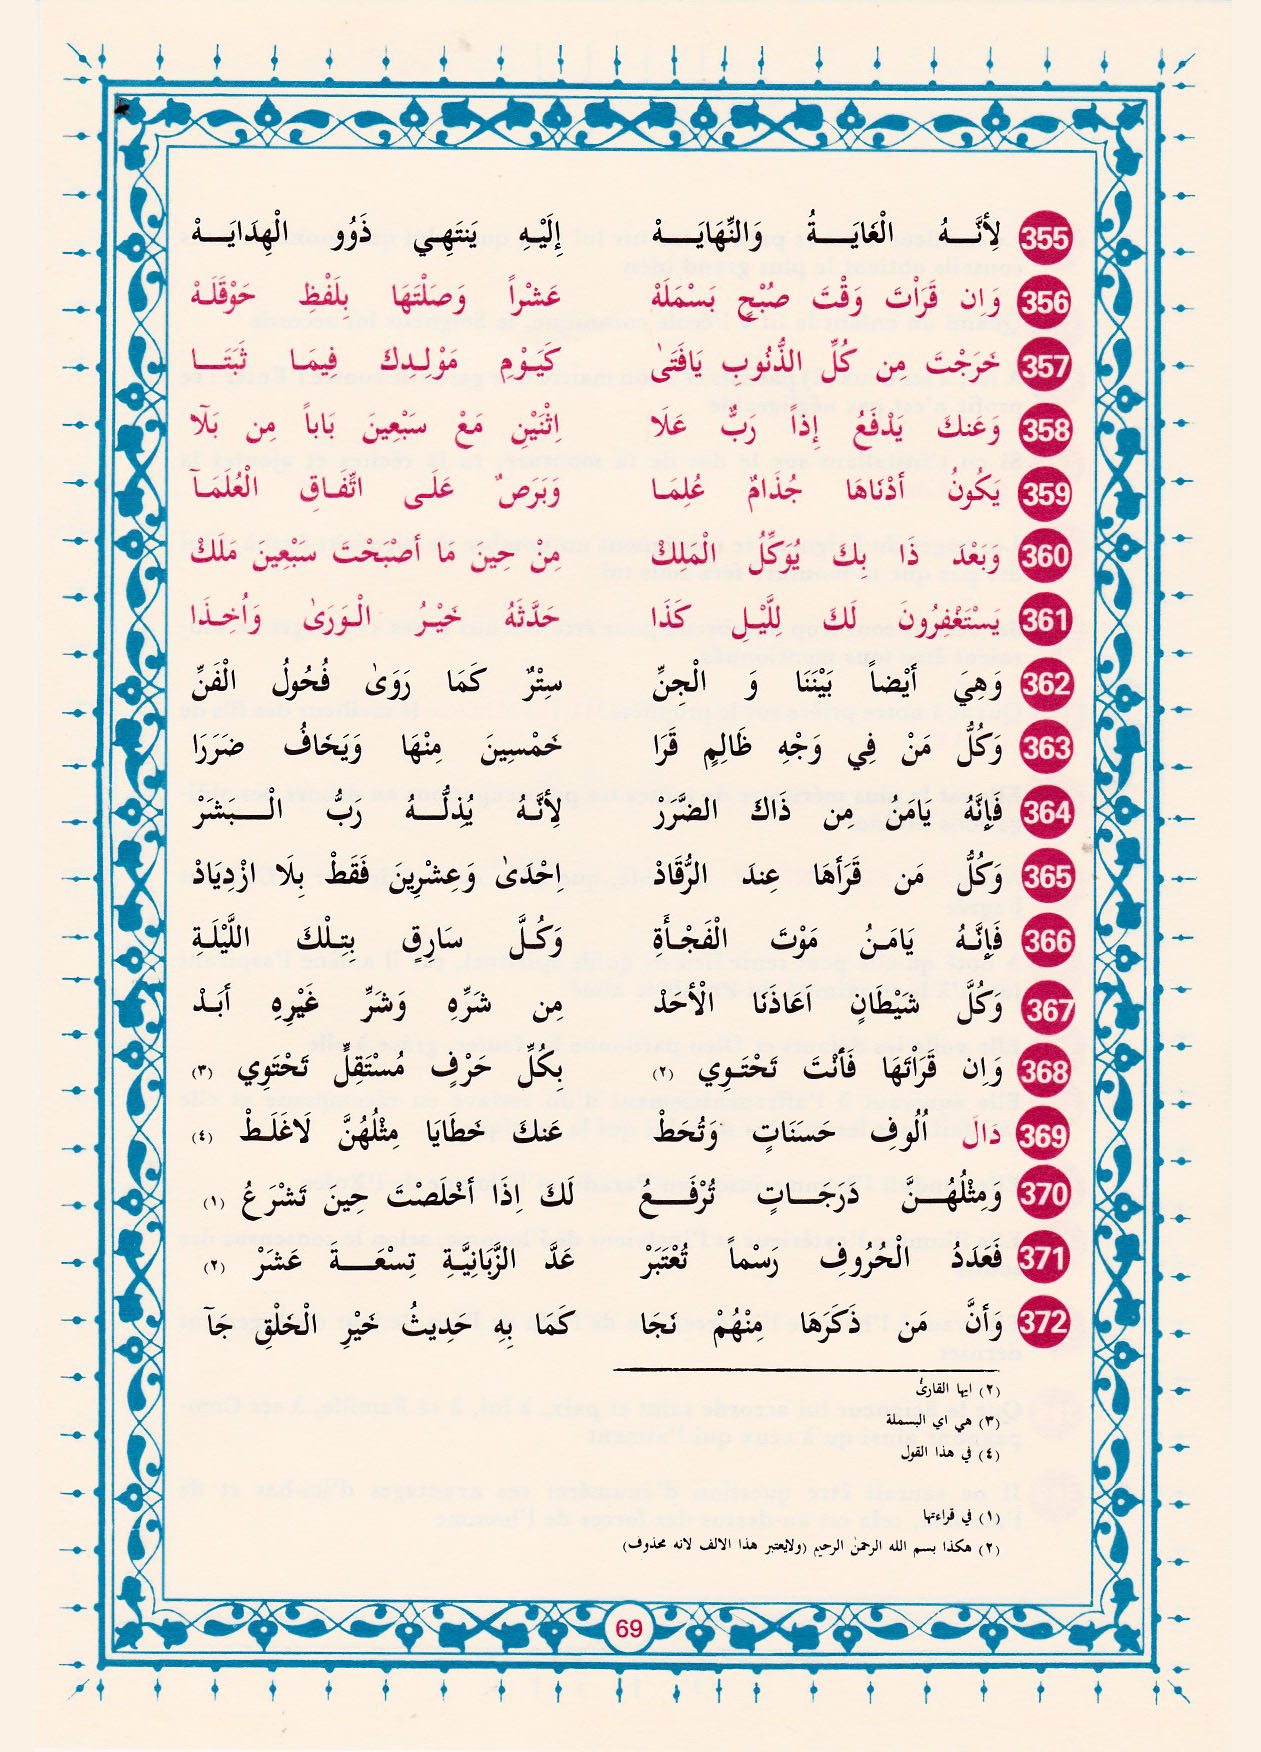 355 لِأَنَّـهُ الْغَايَـةُ وَالنِّهَايَـهْ إِلَيْهِ يَنتَهِي ذَوُو الْهِدَايَـهْ
356 وَإِن قَرَأْتَ وَقْتَ صُبْحٍ بَسْمَلَهْ عَشْراً وَصَلْتَهَا بِلَفْظِ حَوْقَلَهْ
357 خَرَجْتَ مِن كُلِّ الذُّنُوبِ يَافَتَىٰ كَيَوْمِ مَوْلِدِكَ فِيمَا ثَبَتَـا
358 وَعَنكَ يَدْفَعُ إِذاً رَبٌّ عَلَا اِثْنَيْنِ مَعْ سَبْعِينَ بَاباً مِن بَلَآ
359 يَكُونُ أَدْنَاهَا جُذَامٌ عُلِمَا وَبَرَصٌ عَلَى اتِّفَاقِ الْعُلَمَآ
360 وَبَعْدَ ذَا بِكَ يُوَكِّلُ الْمَلِكْ مِنْ حِينَ مَا أَصْبَحْتَ سَبْعِينَ مَلَكْ
361 يَسْتَغْفِرُونَ لَكَ لِلَّيْلِ كَذَا حَدَّثَهُ خَيْرُ الْوَرَىٰ وَأُخِذَا
362 وَهِيَ أَيْضاً بَيْنَنَا وَ الْجِنِّ سِتْرٌ كَمَا رَوَىٰ فُحُولُ الْفَنِّ
363 وَكُلُّ مَنْ فِي وَجْهِ ظَالِمٍ قَرَا خَمْسِينَ مِنْهَا وَيَخَافُ ضَرَرَا
364 فَإِنَّهُ يَامَنُ مِن ذَاكَ الضَّرَرْ لِأَنَّـهُ يُذِلُّـهُ رَبُّ الْـبَشَرْ
365 وَكُلُّ مَن قَرَأَهَا عِندَ الرُّقَادْ اِحْدَىٰ وَعِشْرِينَ فَقَطْ بِلَا ازْدِيَادْ
366 فَإِنَّهُ يَامَنُ مَوْتَ الْفَجْأَةِ وَكُلَّ سَارِقٍ بِتِلْكَ اللَّيْلَةِ
367 وَكُلَّ شَيْطَانٍ اَعَاذَنَا الْأَحَدْ مِن شَرِّهِ وَشَرِّ غَيْرِهِ أَبَدْ
368 وَإِن قَرَاتَهَا فَأَنْتَ تَحْتَوِي (٢) بِكُلِّ حَرْفٍ مُسْتَقِلٍّ تَحْتَوِي (٣)
369 دَالَ اُلُوفِ حَسَنَاتٍ وَتُحَطْ عَنكَ خَطَايَا مِثْلُهُنَّ لَاغَلَطْ (٤)
370 وَمِثْلُهُـنَّ دَرَجَـاتٍ تُرْفَـعُ لَكَ اِذَا أَخْلَصْتَ حِينَ تَشْرَعُ (١)
371 فَعَدَدُ الْحُرُوفِ رَسْماً تُعْتَبَرْ عَدَّ الزَّبَانِيَّةِ تِسْعَـةَ عَشَرْ (٢)
372 وَأَنَّ مَن ذَكَرَهَا مِنْهُمْ نَجَا كَمَا بِهِ حَدِيثُ خَيْرِ الْخَلْقِ جَآ
(٢) ايها القارئ
(٣) هي اي البسملة
(٤) في هذا القول
(١) في قراءتها
(٢) هكذا بسم الله الرحمن الرحيم (ولايعتبر هذا الالف لانه محذوف)
69